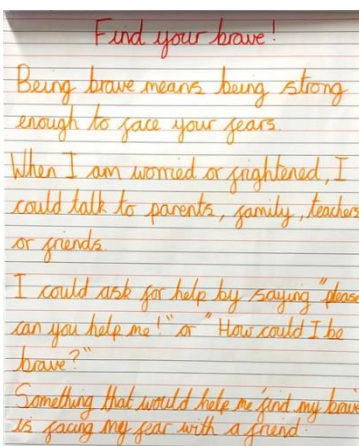 Find your brave!
Being brave means being strong
enough to face your fears.
When I am worried or frightened, I
could talk to parents, family, teachers
or friends.
I could ask for help by saying "please
can you help me!" or "How could I be
brave?"
Something that would help me 'find my brave'
is facing my fear with a friend.